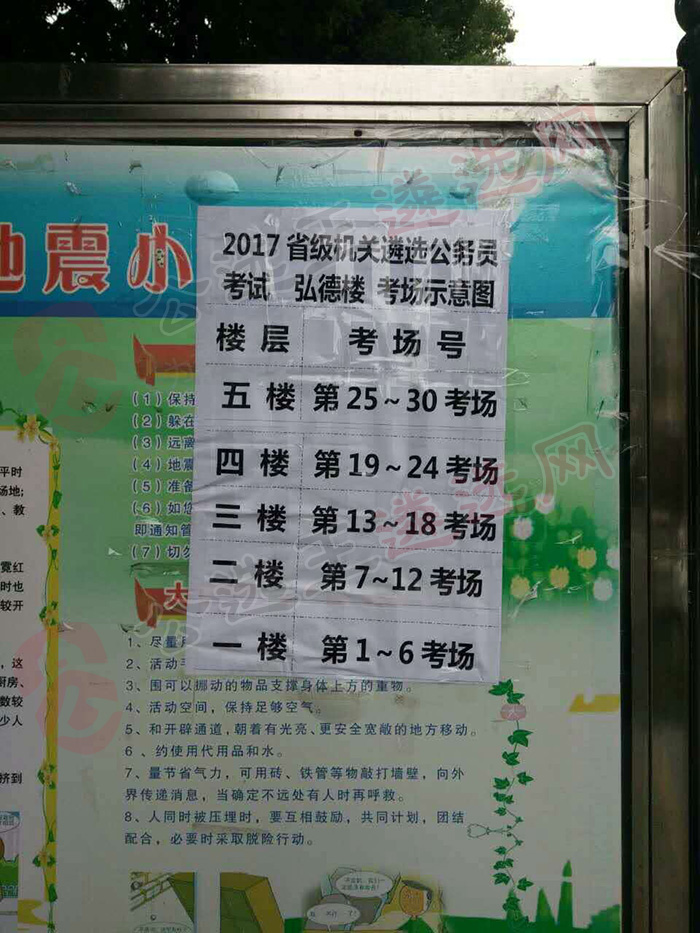 地震小
2017 省级机关遴选公务员
考试 弘德楼 考场示意图
楼层 考场号
五楼 第25~30考场
四楼 第19~24考场
三楼 第13~18考场
二楼 第7~12考场
一楼 第1~6考场
(1)保持
(2)躲在
(3)远离
(4)地震
(5)准备
(6)如您
即通知管
(7)切勿
大
1、尽量
2、活动
3、围可以挪动的物品支撑身体上方的重物。
4、活动空间，保持足够空气。
5、和开辟通道，朝着有光亮、更安全宽敞的地方移动。
6、约使用代用品和水。
7、量节省气力，可用砖、铁管等物敲打墙壁，向外
界传递消息，当确定不远处有人时再呼救。
8、人同时被压埋时，要互相鼓励，共同计划，团结
配合，必要时采取脱险行动。
平时
场地;
、教
霓红
时也
较开
，这
厨房、
数较
少人
挤到
公选王遴选网
公选王遴选网